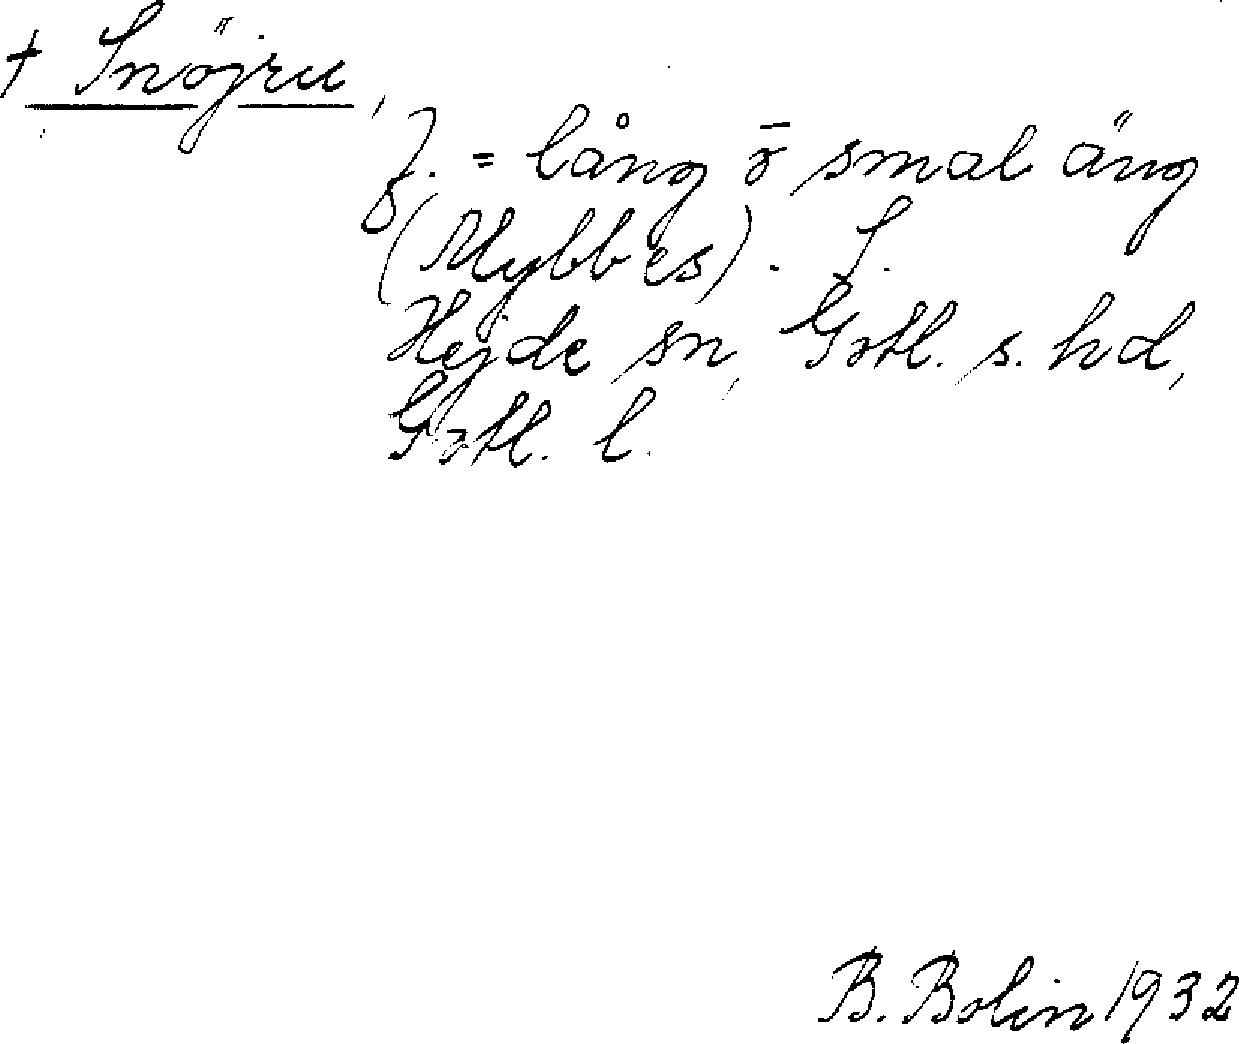 † Snöjru,
f. = lång o smal äng
(Mybbes). S.
Hejde sn, Gotl. s. hd,
Gotl. l.
B. Bolin 1932